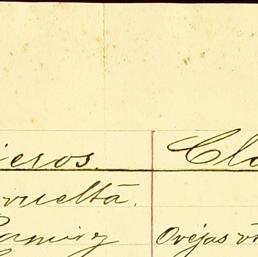 ieros. Cla
vuelta.
Ramirz Ovejas v